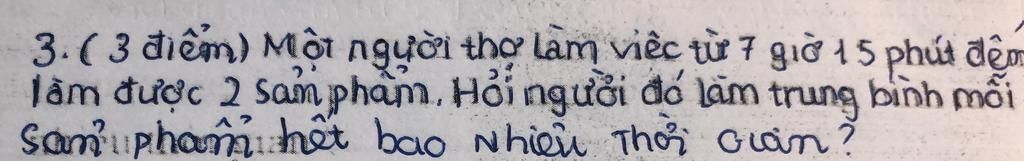 3. ( 3 điểm) Một người thợ làm việc từ 7 giờ 15 phút đến
làm được 2 sản phẩm. Hỏi người đó làm trung bình mỗi
sản phẩm hết bao nhiêu Thời Gian?